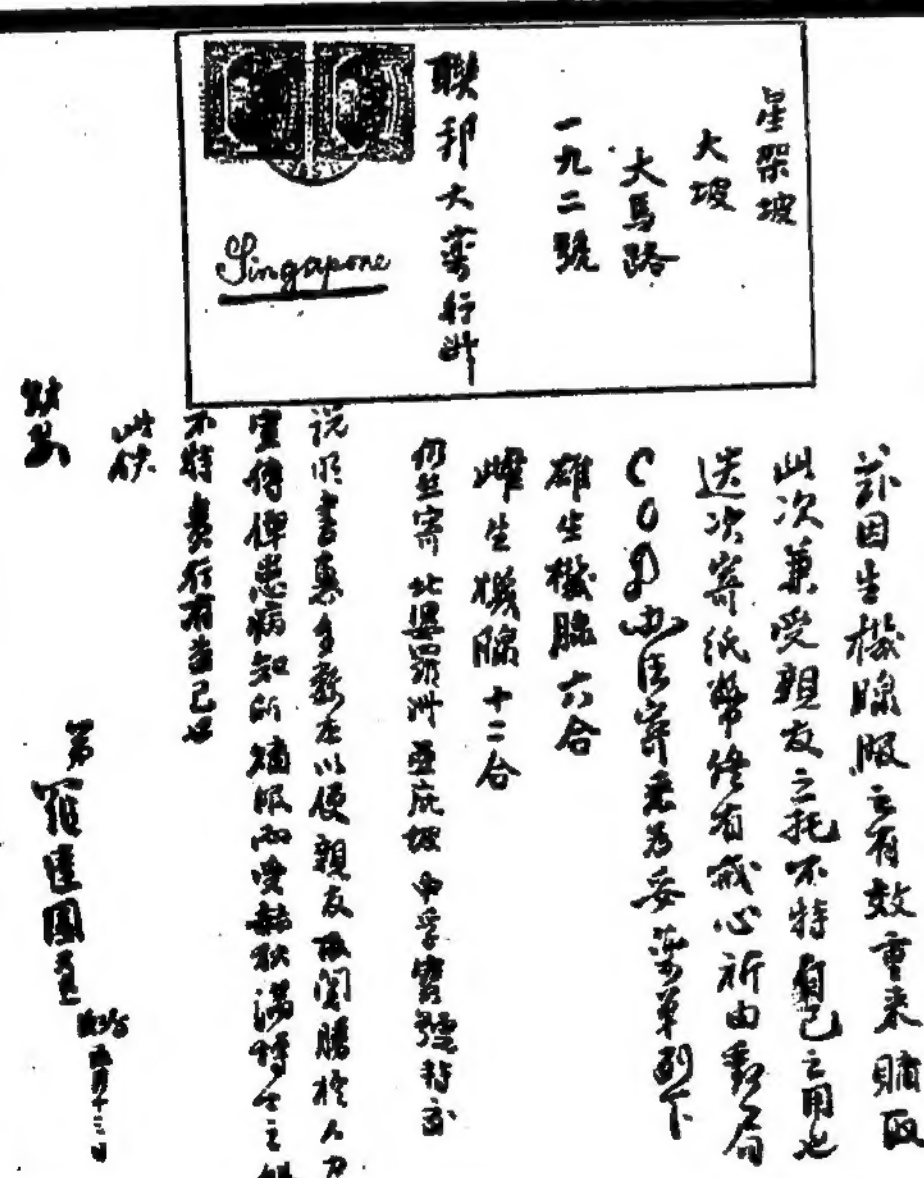 星架坡
大坡
大馬路
一九二號
聯邦大藥行
Singapore
茲因生機腺服之有效重來購取
此次兼受親友之托不特自己之用也
迭次寄紙幣 有戒心祈由郵局
COD 寄來為妥藥單列下
雄生機腺六合
雌生機腺十二合
北婆羅洲亞庇坡 寶號
説明書惠多數左以便親友 閱勝於人力
宣傳俾患病知所購服而受
不特貴行有益已也
此伏
財安
弟羅 
五月十二日